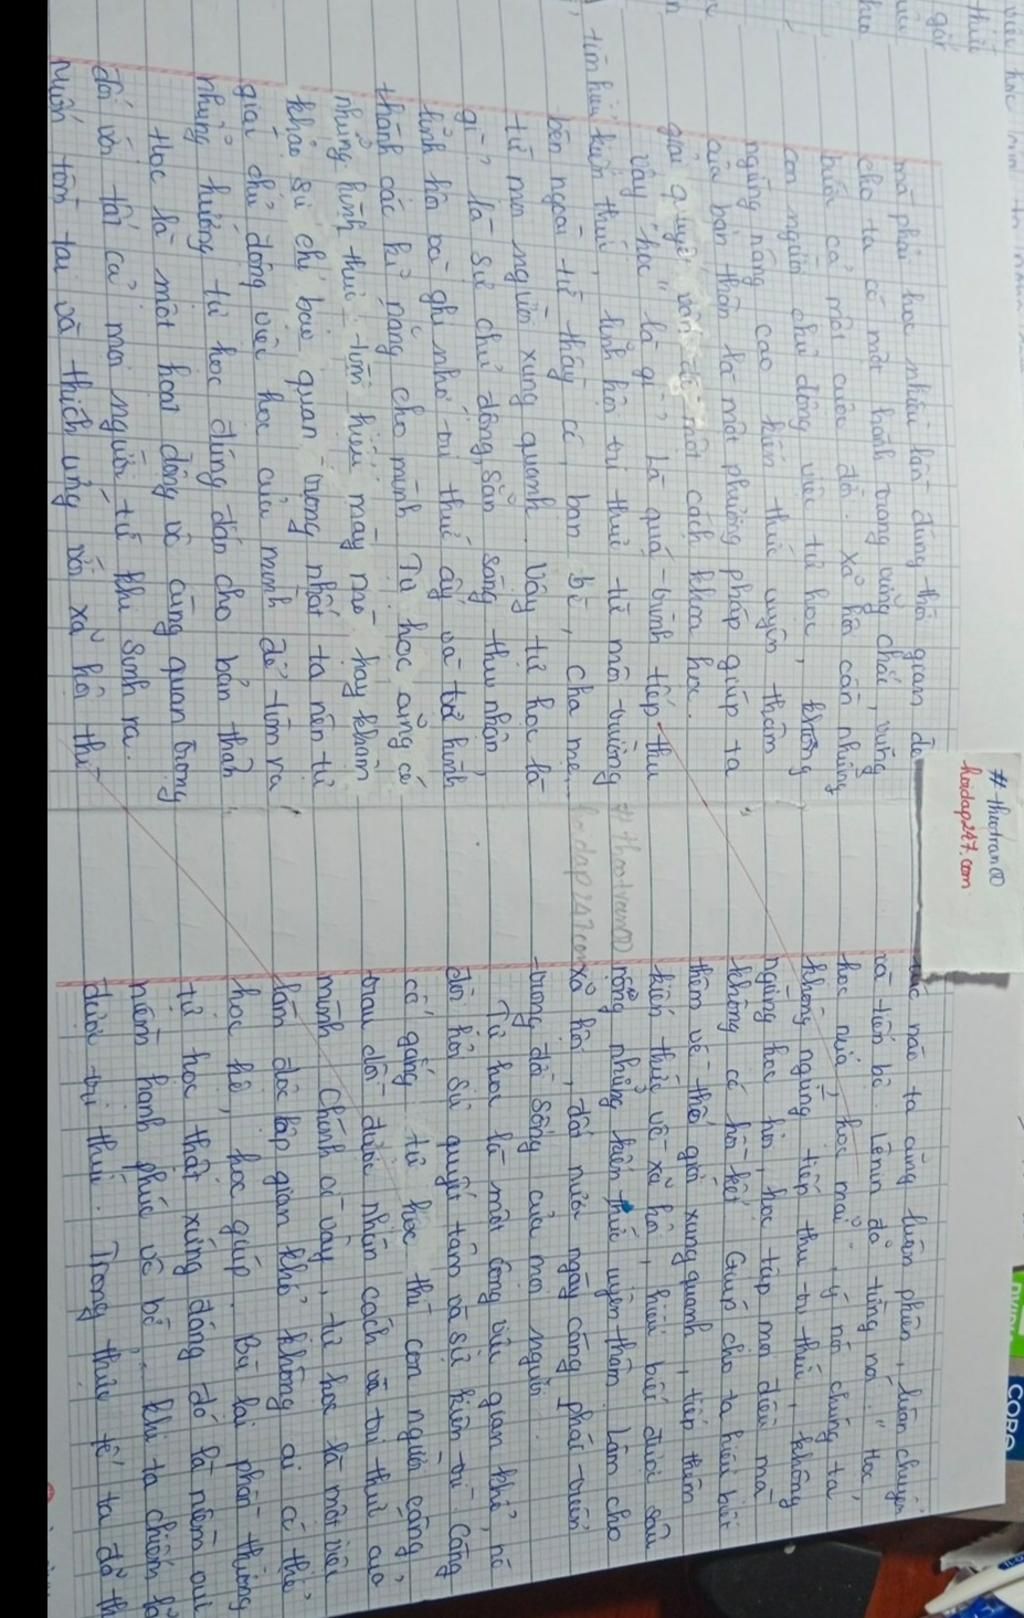 mà phải học nhiều lần đúng thời gian để
cho ta có một hành trang vững chắc, vững
bước cả một cuộc đời. Xã hội cần những
con người chủ động việc tự học, không
ngừng nâng cao kiến thức uyên thâm
của bản thân là một phương pháp giúp ta
giải quyết vấn đề một cách khoa học.
Vậy "học" là gì? Là quá trình tiếp thu
tìm hiểu kiến thức, lĩnh hội tri thức từ môi trường
bên ngoài từ thầy cô, bạn bè, cha mẹ...
từ mọi người xung quanh. Vậy tự học là
gì? là sự chủ động, sẵn sàng thu nhận,
lĩnh hội và ghi nhớ tri thức ấy và trở hình
thành các kĩ năng cho mình. Tự học cũng có
những hình thức tìm hiểu máy móc hay khám
khảo sự chỉ bảo quan trọng nhất ta nên tự
giác chủ động việc học của mình để tìm ra
những hướng tự học đúng đắn cho bản thân.
Học là một hoạt động vô cùng quan trọng
đối với tất cả mọi người từ khi sinh ra.
Muốn tồn tại và thích ứng với xã hội thì
#thuotran00
hoidap247.com
#thuotran00
hoidap247.com
lúc nào ta cũng luôn phiên, luôn chuyển
và tiến bộ. Lênin đã từng nói: "Học,
học nữa, học mãi", ý nói chúng ta
không ngừng tiếp thu tri thức, không
ngừng học hỏi, học tập mọi điều mà
không có hồi kết. Giúp cho ta hiểu biết
thêm về thế giới xung quanh, tiếp thêm
kiến thức về xã hội, hiểu biết được sâu
rộng những kiến thức uyên thâm. Làm cho
xã hội, đất nước ngày càng phát triển
trong đời sống của mọi người.
Tự học là một công việc gian khổ, nó
đòi hỏi sự quyết tâm và sự kiên trì. Càng
cố gắng tự học thì con người càng
trau dồi được nhân cách và tri thức của
mình. Chính vì vậy, tự học là một việc
làm độc lập gian khổ không ai có thể
học hộ, học giúp. Bù lại phần thưởng
tự học thật xứng đáng đó là niềm vui
niềm hạnh phúc vô bờ khi ta chiếm
được tri thức. Trong thực tế ta đã
COBO